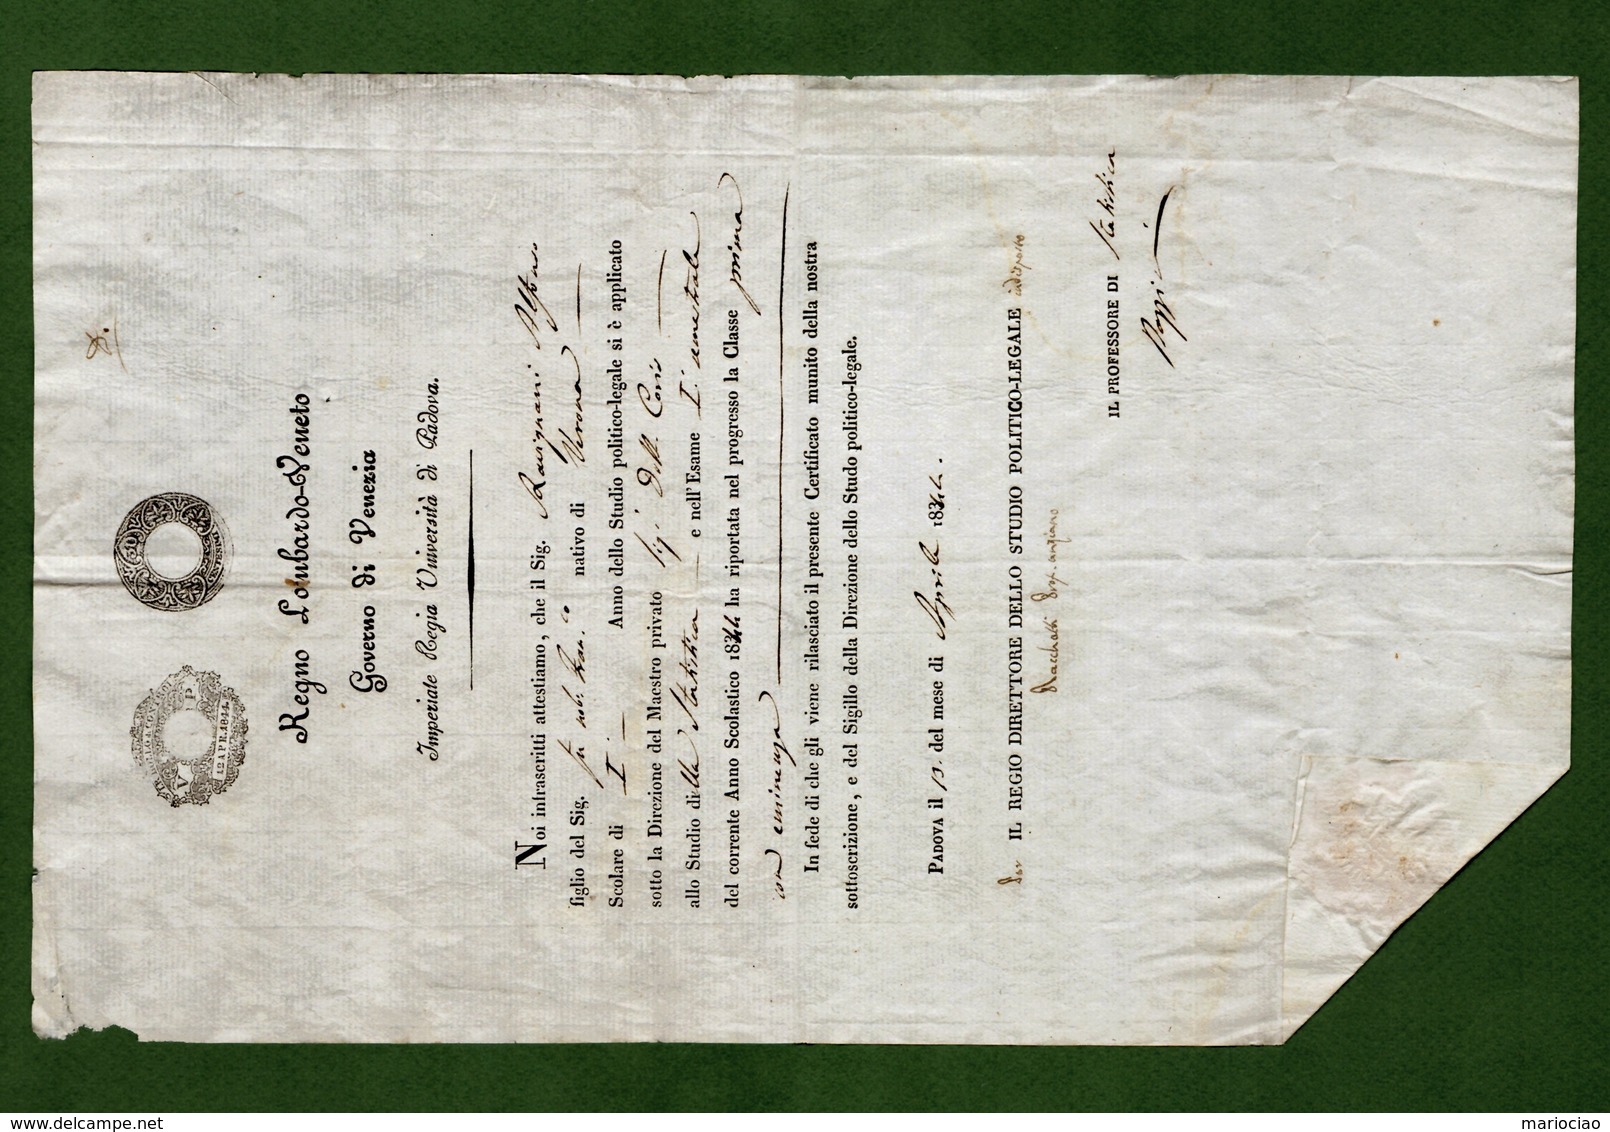 D.
V P
12 APR. 1844.
Regno Lombardo-Veneto
Governo di Venezia
Imperiale Regia Università di Padova.
Noi infrascritti attestiamo, che il Sig. Ravignani Alfonso
figlio del Sig. fu nob: Fran.co nativo di Verona
Scolare di I. Anno dello Studio politico-legale si è applicato
sotto la Direzione del Maestro privato Sig.r Dott. Coris
allo Studio della Statistica e nell'Esame I. semestrale
del corrente Anno Scolastico 1844 ha riportata nel progresso la Classe prima
con eminenza
In fede di che gli viene rilasciato il presente Certificato munito della nostra
sottoscrizione, e del Sigillo della Direzione dello Studo politico-legale.
PADOVA il 13. del mese di Aprile 1844.
Per IL REGIO DIRETTORE DELLO STUDIO POLITICO-LEGALE indisposto
Racchetti Prof. anziano
IL PROFESSORE DI Statistica
mariociao